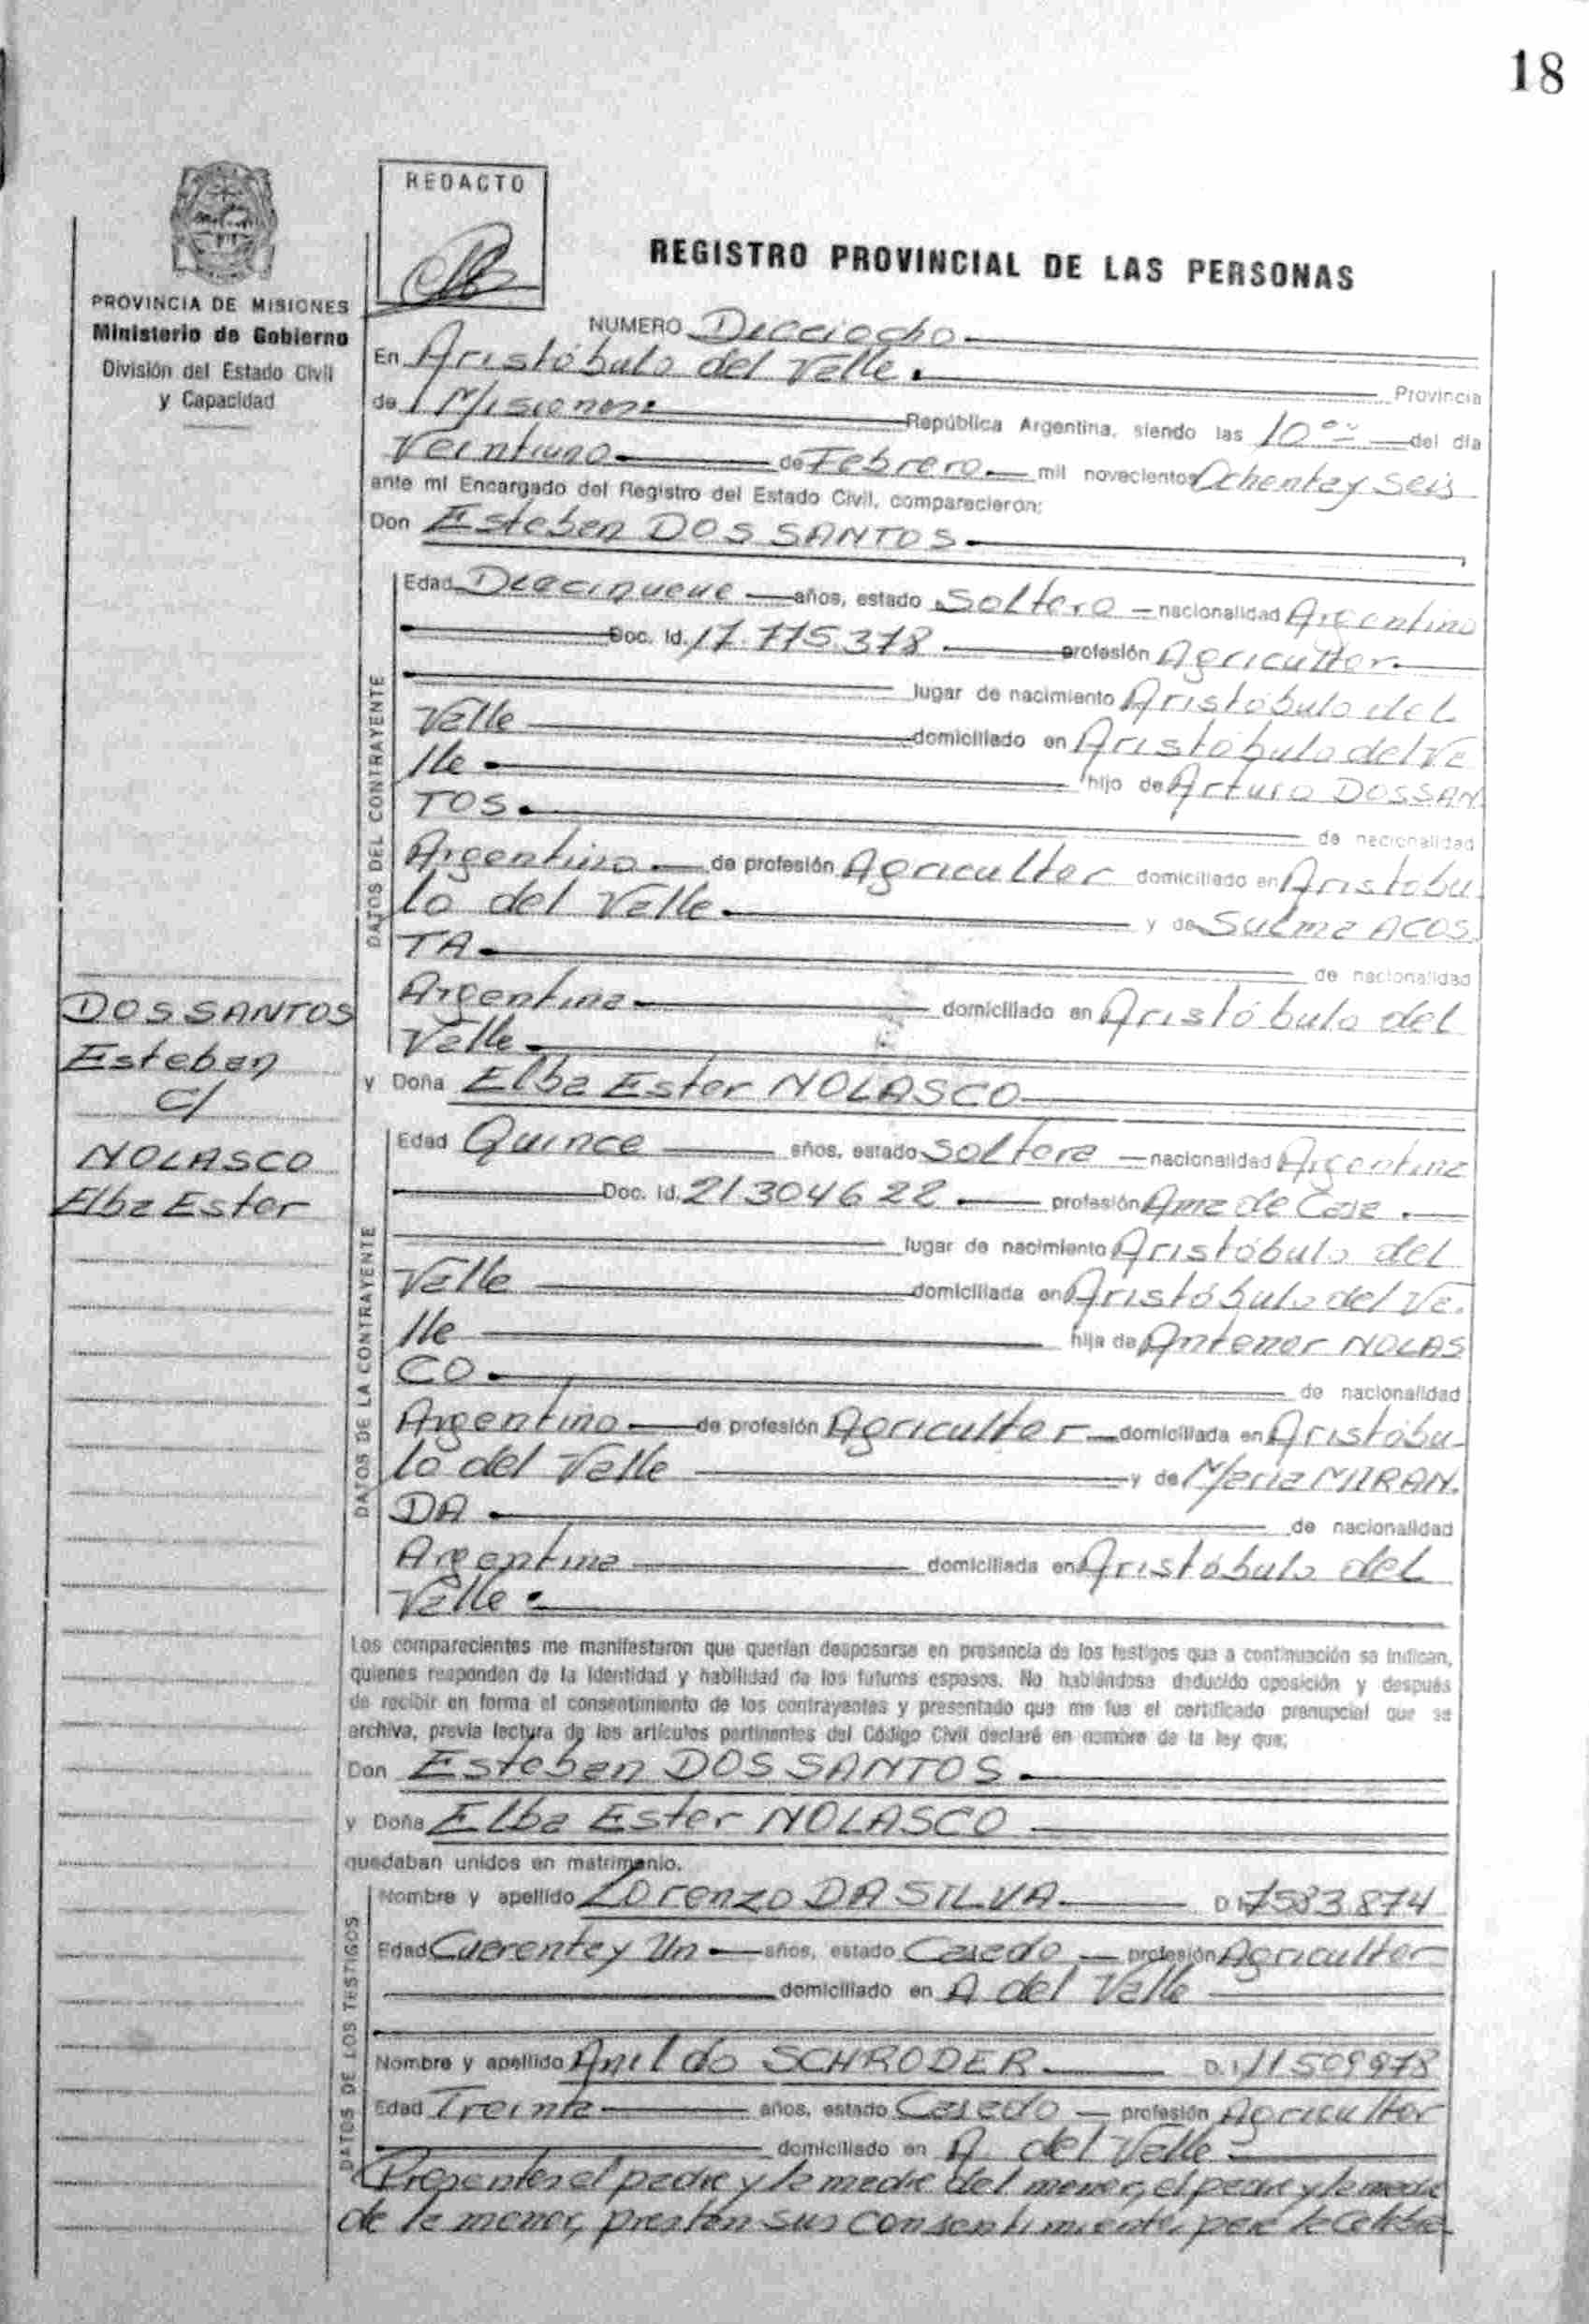 18
REDACTO
REGISTRO PROVINCIAL DE LAS PERSONAS
PROVINCIA DE MISIONES
Ministerio de Gobierno
División del Estado Civil
y Capacidad
NUMERO Dieciocho
En Aristóbulo del Valle. Provincia
de Misiones República Argentina, siendo las 10 del día
Veintiuno de Febrero mil novecientos Ochenta y Seis
ante mi Encargado del Registro del Estado Civil, comparecieron:
Don Esteban DOS SANTOS
DATOS DEL CONTRAYENTE
Edad Diecinueve años, estado Soltero nacionalidad Argentino
Doc. Id. 17.775.378 profesión Agricultor
lugar de nacimiento Aristóbulo del
Valle domiciliado en Aristóbulo del Va
lle hijo de Arturo DOS SAN
TOS. de nacionalidad
Argentino de profesión Agricultor domiciliado en Aristobu
lo del Valle y de Sulma ACOS
TA de nacionalidad
Argentina domiciliado en Aristóbulo del
Valle
DOS SANTOS
Esteban
c/
NOLASCO
Elba Ester
y Doña Elba Ester NOLASCO
DATOS DE LA CONTRAYENTE
Edad Quince años, estado Soltera nacionalidad Argentina
Doc. Id. 21304622 profesión Ama de Casa.
lugar de nacimiento Aristóbulo del
Valle domiciliada en Aristóbulo del Va.
lle hija de Antenor NOLAS
CO. de nacionalidad
Argentino de profesión Agricultor domiciliada en Aristóbu
lo del Valle y de Maria MIRAN.
DA de nacionalidad
Argentina domiciliada en Aristóbulo del
Valle.
Los comparecientes me manifestaron que querían desposarse en presencia de los testigos que a continuación se indican,
quienes responden de la identidad y habilidad de los futuros esposos. No habiéndose deducido oposición y después
de recibir en forma el consentimiento de los contrayentes y presentado que me fue el certificado prenupcial que se
archiva, previa lectura de los artículos pertinentes del Código Civil declaré en nombre de la ley que:
Don Esteban DOS SANTOS.
y Doña Elba Ester NOLASCO
quedaban unidos en matrimonio.
DATOS DE LOS TESTIGOS
Nombre y apellido Lorenzo DA SILVA D.I. 7583.874
Edad Cuarenta y Un años, estado Casado profesión Agricultor
domiciliado en A del Valle
Nombre y apellido Anildo SCHRODER D.I. 11509978
Edad Treinta años, estado Casado profesión Agricultor
domiciliado en A. del Valle
Presentes el padre y la madre del menor, el padre y la madre
de la menor, prestan sus consentimiento, para la celebra